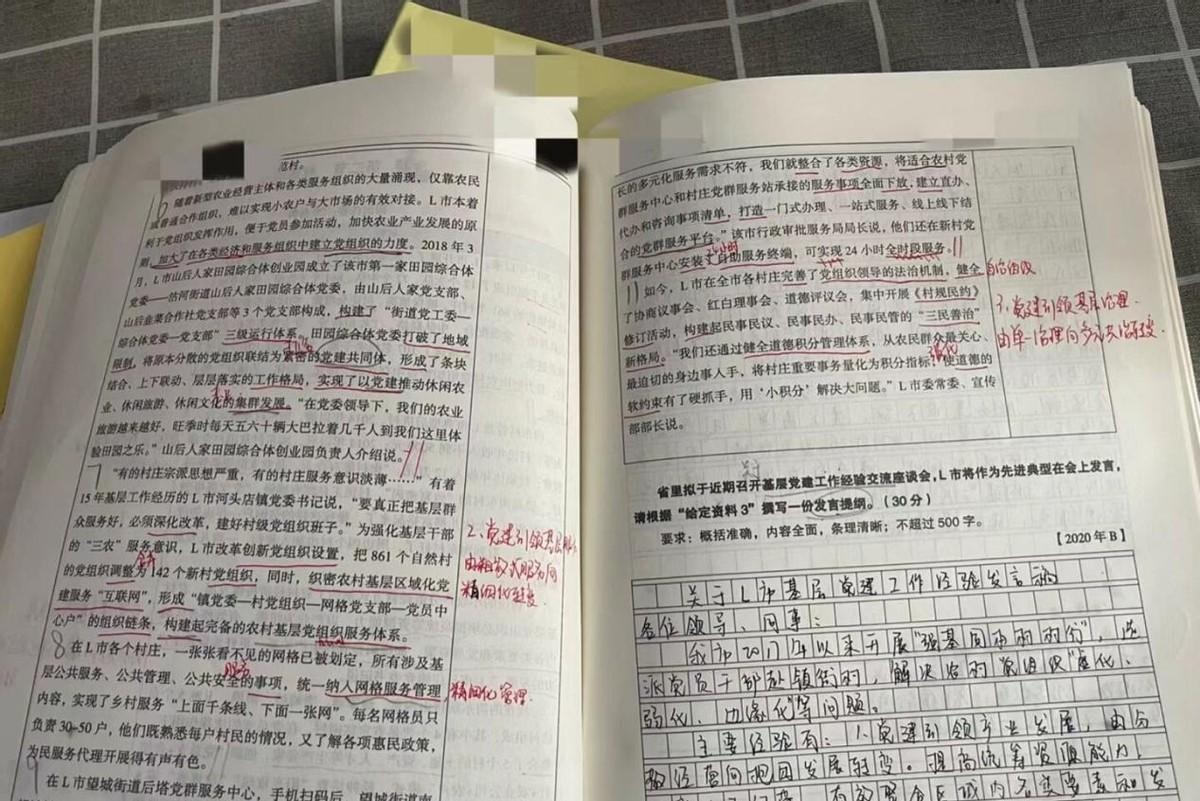 范村。
随着新型农业经营主体和各类服务组织的大量涌现，仅靠农民
或普通合作组织，难以实现小农户与大市场的有效对接。L市本着
利于党组织发挥作用，便于党员参加活动，加快农业产业发展的原
则，加大了在各类经济和服务组织中建立党组织的力度。2018年3
月，L市山后人家田园综合体创业园成立了该市第一家田园综合体
党委——沽河街道山后人家田园综合体党委，由山后人家党支部、
山后韭菜合作社党支部等3个党支部构成，构建了“街道党工委—
综合体党委—党支部”三级运行体系。田园综合体党委打破了地域
限制，将原本分散的党组织联结为紧密的党建共同体，形成了条块
结合、上下联动、层层落实的工作格局，实现了以党建推动休闲农
业、休闲旅游、休闲文化的集群发展。“在党委领导下，我们的农业
旅游越来越好，旺季时每天五六十辆大巴拉着几千人到我们这里体
验田园之乐。”山后人家田园综合体创业园负责人介绍说。
7
“有的村庄宗派思想严重，有的村庄服务意识淡薄……”有着
15年基层工作经历的L市河头店镇党委书记说，“要真正把基层群
众服务好，必须深化改革，建好村级党组织班子。”为强化基层干部
的“三农”服务意识，L市改革创新党组织设置，把861个自然村
的党组织调整为142个新村党组织，同时，织密农村基层区域化党
建服务“互联网”，形成“镇党委—村党组织—网格党支部—党员中
心户”的组织链条，构建起完备的农村基层党组织服务体系。
8
在L市各个村庄，一张张看不见的网格已被划定，所有涉及基
层公共服务、公共管理、公共安全的事项，统一纳入网格服务管理
内容，实现了乡村服务“上面千条线、下面一张网”。每名网格员只
负责30~50户，他们既熟悉每户村民的情况，又了解各项惠民政策，
为民服务代理开展得有声有色。
9
在L市望城街道后塔党群服务中心，手机扫码后，望城街道南
2、党建引领基层服务
由粗放式服务向
精细化转变
精细化管理
长的多元化服务需求不符，我们就整合了各类资源，将适合农村党
群服务中心和村庄党群服务站承接的服务事项全面下放，建立直办、
代办和咨询事项清单，打造一门式办理、一站式服务、线上线下结
合的党群服务平台。”该市行政审批服务局局长说，他们还在新村党
群服务中心安装了自助服务终端，可实现24小时全时段服务。
11
如今，L市在全市各村庄完善了党组织领导的法治机制，健全
了协商议事会、红白理事会、道德评议会，集中开展《村规民约》
修订活动，构建起民事民议、民事民办、民事民管的“三民善治”
新格局。“我们还通过健全道德积分管理体系，从农民群众最关心、
最迫切的身边事人手，将村庄重要事务量化为积分指标，使道德的
软约束有了硬抓手，用‘小积分’解决大问题。”L市委常委、宣传
部部长说。
3、党建引领基层治理
由单一治理向多元共治转变
省里拟于近期召开基层党建工作经验交流座谈会，L市将作为先进典型在会上发言，
请根据“给定资料3”撰写一份发言提纲。（30分）
要求：概括准确，内容全面，条理清晰；不超过500字。
【2020年B】
关于L市基层党建工作经验发言稿
各位领导、同事：
我市2017年以来开展“强基固本
派党员干部赴镇街村，解决农村党组织“虚化、
弱化、边缘化”等问题。
主要经验有：1、党建引领产业发展，由分
散经营向抱团发展转变。提高统筹资源能力，